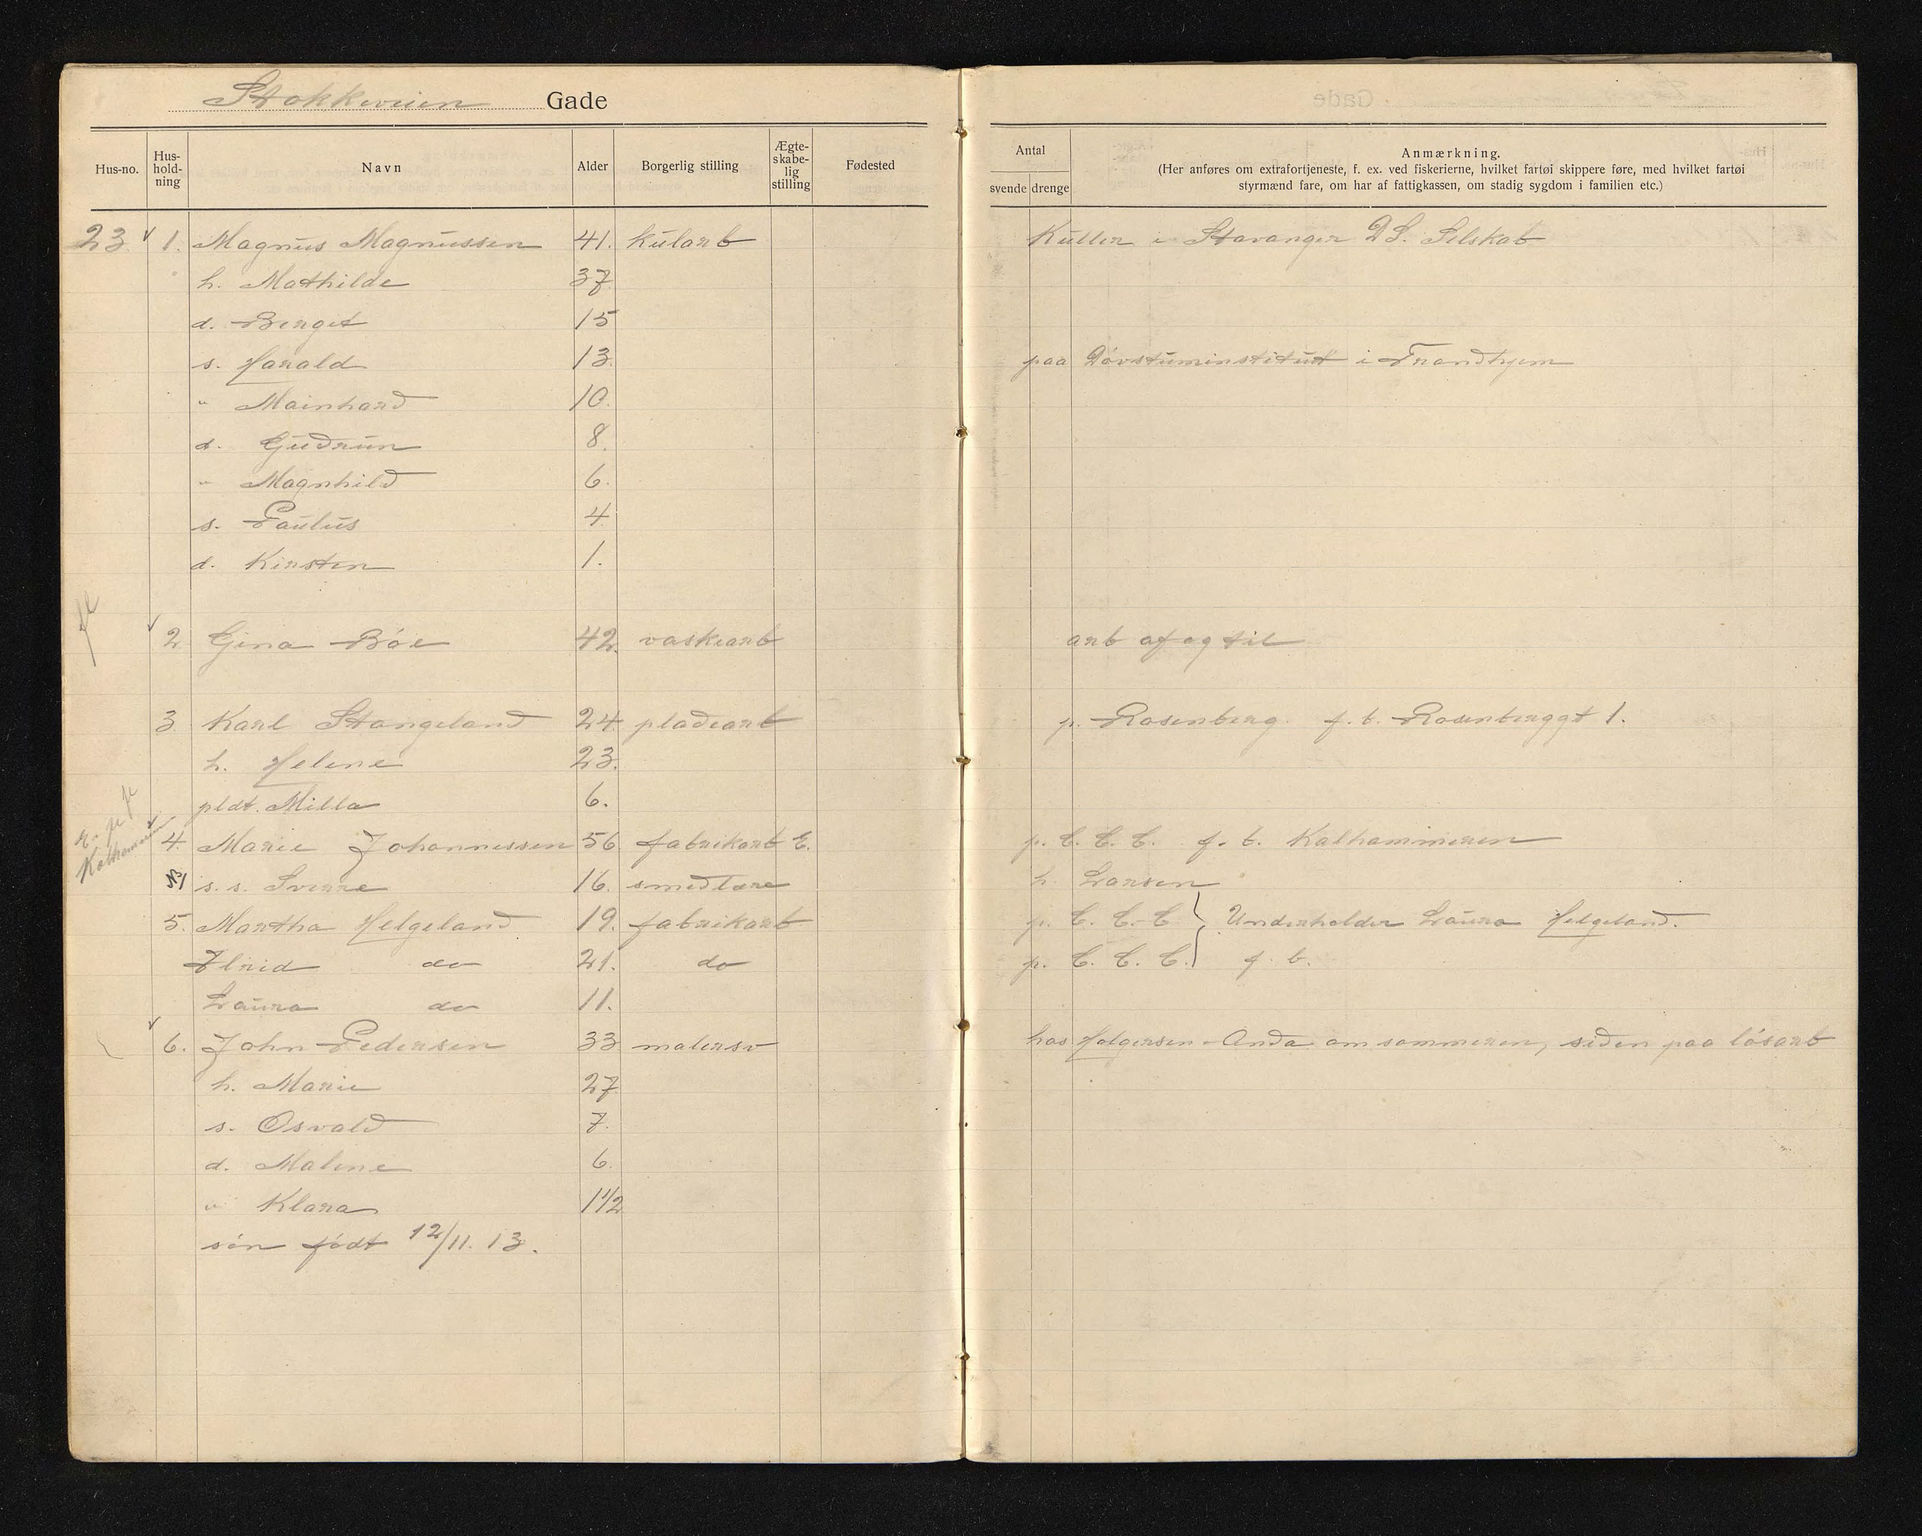 Stokkeveien Gade
Hus-no. Hus-hold-ning Navn Alder Borgerlig stilling Ægte-skabe-lig stilling Fødested
Antal
svende drenge
Anmærkning.
(Her anføres om extrafortjeneste, f. ex. ved fiskerierne, hvilket fartøi skippere føre, med hvilket fartøi
styrmænd fare, om har af fattigkassen, om stadig sygdom i familien etc.)
23 1. Magnus Magnussen 41. kularb Kuller i Stavanger DS. Selskab
h. Mathilde 37
d. Berget 15
s. Harald 13 paa Døvstuminstitut i Trondhjem
" Mainhard 10.
d. Gudrun 8.
" Magnhild 6.
s. Paulus 4
d. Kirsten 1.
2 Gina Bøe 42. vaskearb arb af og til
3 Karl Stangeland 24. pladearb p. Rosenberg. f. b. Rosenberggt 1.
h. Helene 23.
pldt. Milla 6.
4. Marie Johannessen 56 fabrikarb E. p. C. C. C. f. b. Kalhammeren
Kalhammeren
s. s. Sverre 16. smedlære h. Larsen
5. Martha Helgeland 19. fabrikarb p. C. C. C. Underholder Laura Helgeland.
do 21. do p. C. C. C. f. b.
Laura do 11.
6. John Pedersen 33 malersv hos Holgersen - Anda om sommeren, siden paa løsarb
h. Marie 27
s. Osvald 7.
d. Maline 6.
" Klara 1 1/2
søn født 12/11. 13.